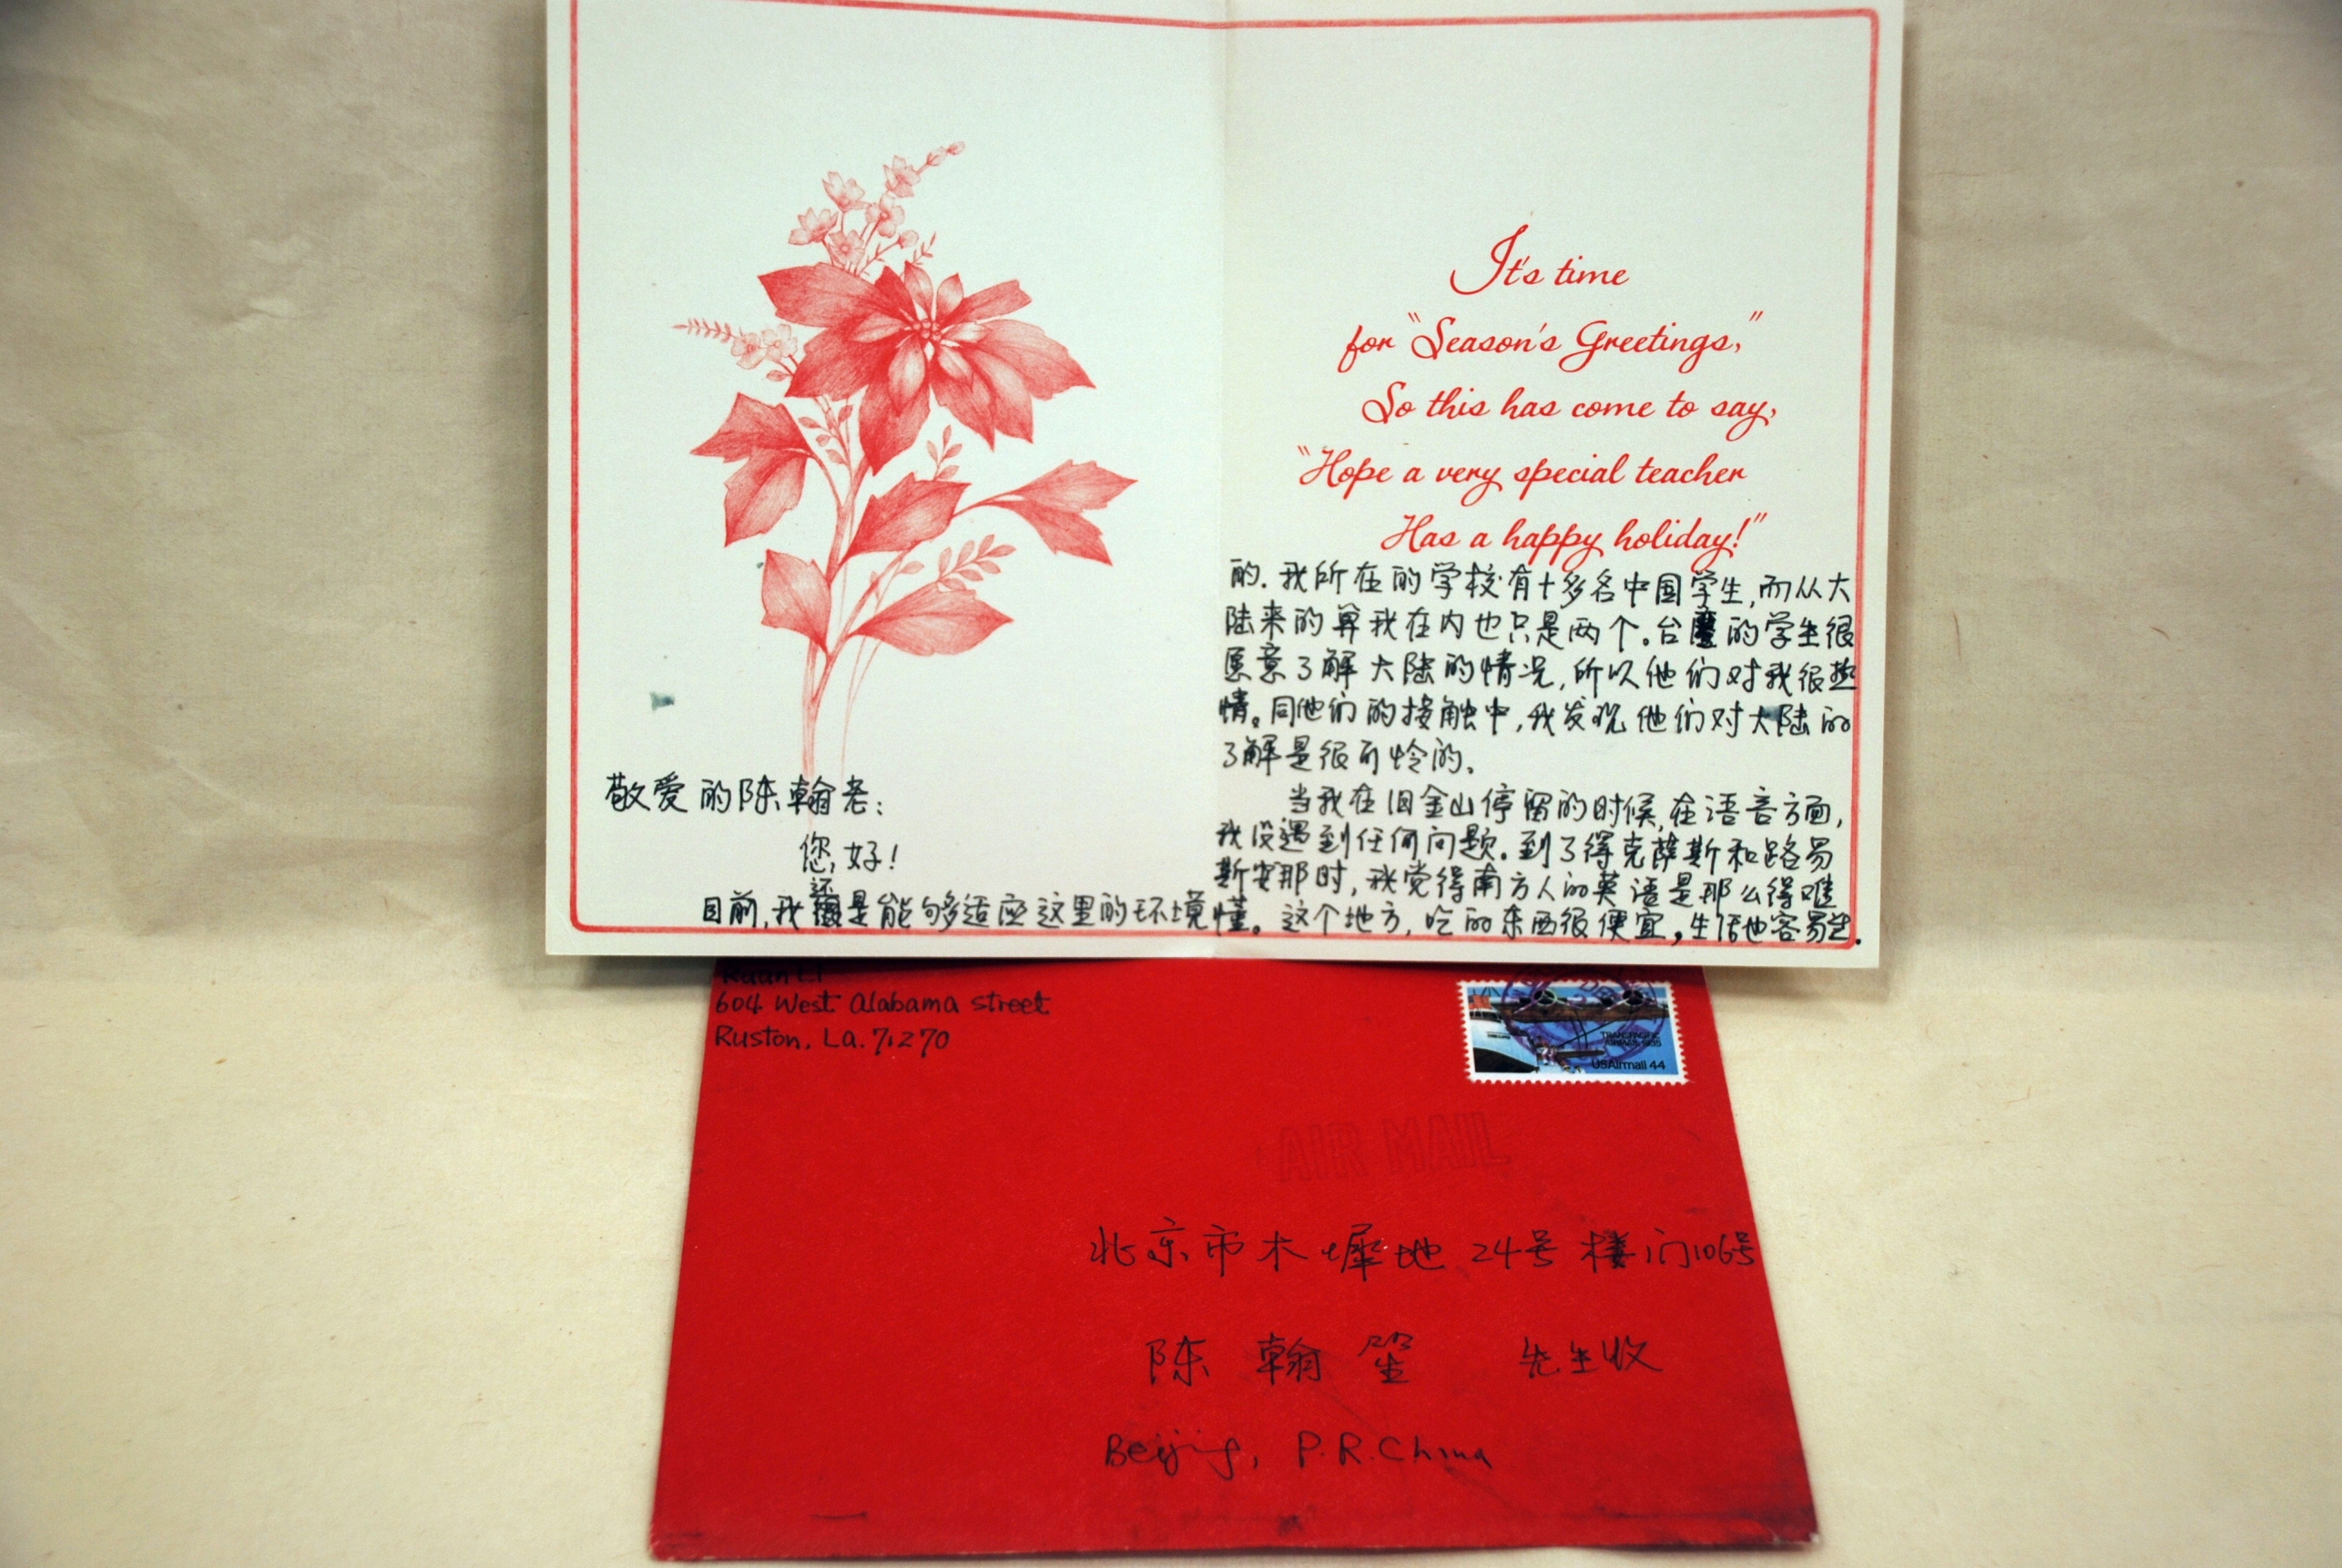 It's time
for "Season's Greetings,"
So this has come to say,
"Hope a very special teacher
Has a happy holiday!"
敬爱的陈翰老:
您好!
还
目前,我是能够适应这里的环境
的.我所在的学校有十多名中国学生,而从大
陆来的算我在内也只是两个。台湾的学生很
愿意了解大陆的情况,所以他们对我很热
情。同他们的接触中,我发现他们对大陆的
了解是很可怜的。
当我在旧金山停留的时候,在语言方面,
我没遇到任何问题.到了得克萨斯和路易
斯安那时,我觉得南方人的英语是那么得难
懂。这个地方,吃的东西很便宜,生活也容易些.
604 West Alabama street
Ruston, La. 71270
TRANSPACIFIC
AIRMAIL 1935
USAirmail 44
AIR MAIL
北京市木墀地24号楼门106号
陈翰笙 先生收
Beijing, P.R.China